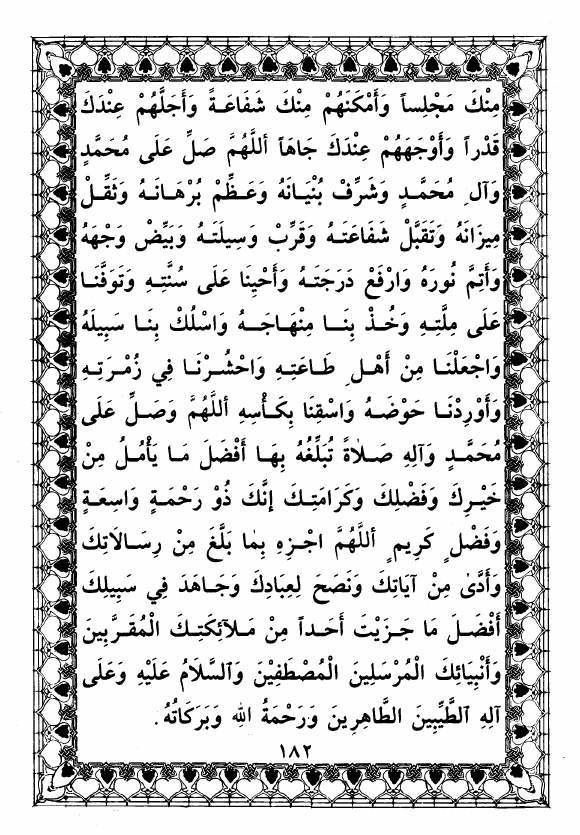 مِنْكَ مَجْلِساً وَأَمْكَنَهُمْ مِنْكَ شَفَاعَةً وَأَجَلَّهُمْ عِنْدَكَ
قَدْراً وَأَوْجَهَهُمْ عِنْدَكَ جَاهاً أَللَّهُمَّ صَلِّ عَلَى مُحَمَّدٍ
وَآلِ مُحَمَّدٍ وَشَرِّفْ بُنْيَانَهُ وَعَظِّمْ بُرْهَانَهُ وَثَقِّلْ
مِيزَانَهُ وَتَقَبَّلْ شَفَاعَتَهُ وَقَرِّبْ وَسِيلَتَهُ وَبَيِّضْ وَجْهَهُ
وَأَتِمَّ نُورَهُ وَارْفَعْ دَرَجَتَهُ وَأَحْيِنَا عَلَى سُنَّتِهِ وَتَوَفَّنَا
عَلَى مِلَّتِهِ وَخُذْ بِنَا مِنْهَاجَهُ وَاسْلُكْ بِنَا سَبِيلَهُ
وَاجْعَلْنَا مِنْ أَهْلِ طَاعَتِهِ وَاحْشُرْنَا فِي زُمْرَتِهِ
وَأَوْرِدْنَا حَوْضَهُ وَاسْقِنَا بِكَأْسِهِ أَللَّهُمَّ وَصَلِّ عَلَى
مُحَمَّدٍ وَآلِهِ صَلاٰةً تُبَلِّغُهُ بِهَا أَفْضَلَ مَا يَأْمُلُ مِنْ
خَيْرِكَ وَفَضْلِكَ وَكَرَامَتِكَ إِنَّكَ ذُوْ رَحْمَةٍ وَاسِعَةٍ
وَفَضْلٍ كَرِيمٍ أَللَّهُمَّ اجْزِهِ بِمٰا بَلَّغَ مِنْ رِسَالَاتِكَ
وَأَدَّىٰ مِنْ آيَاتِكَ وَنَصَحَ لِعِبَادِكَ وَجَاهَدَ فِي سَبِيلِكَ
أَفْضَلَ مَا جَزَيْتَ أَحَداً مِنْ مَلَائِكَتِكَ الْمُقَرَّبِينَ
وَأَنْبِيَائِكَ الْمُرْسَلِينَ الْمُصْطَفَيْنَ وَٱلسَّلَامُ عَلَيْهِ وَعَلَى
آلِهِ ٱلطَّيِّبِينَ الطَّاهِرِينَ وَرَحْمَةُ اللهِ وَبَرَكَاتُهُ.
١٨٢